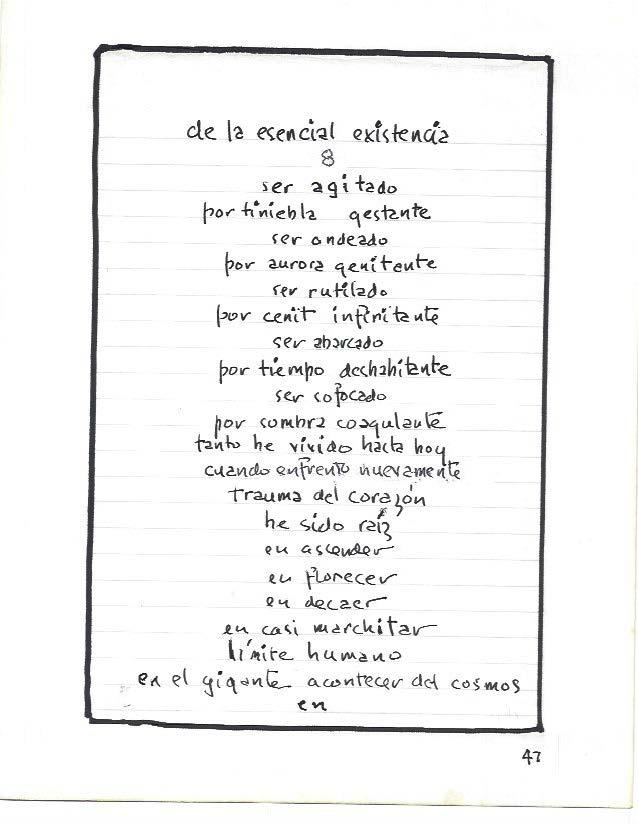 de la esencial existencia
8
ser agitado
por tiniebla gestante
ser ondeado
por aurora genitente
ser rutilado
por cenit infinitante
ser abarcado
por tiempo deshabitante
ser sofocado
por sombra coagulante
tanto he vivido hasta hoy
cuando enfrento nuevamente
trauma del corazón
he sido raíz
en ascender
en florecer
en decaer
en casi marchitar
límite humano
en el gigante acontecer del cosmos
en
47